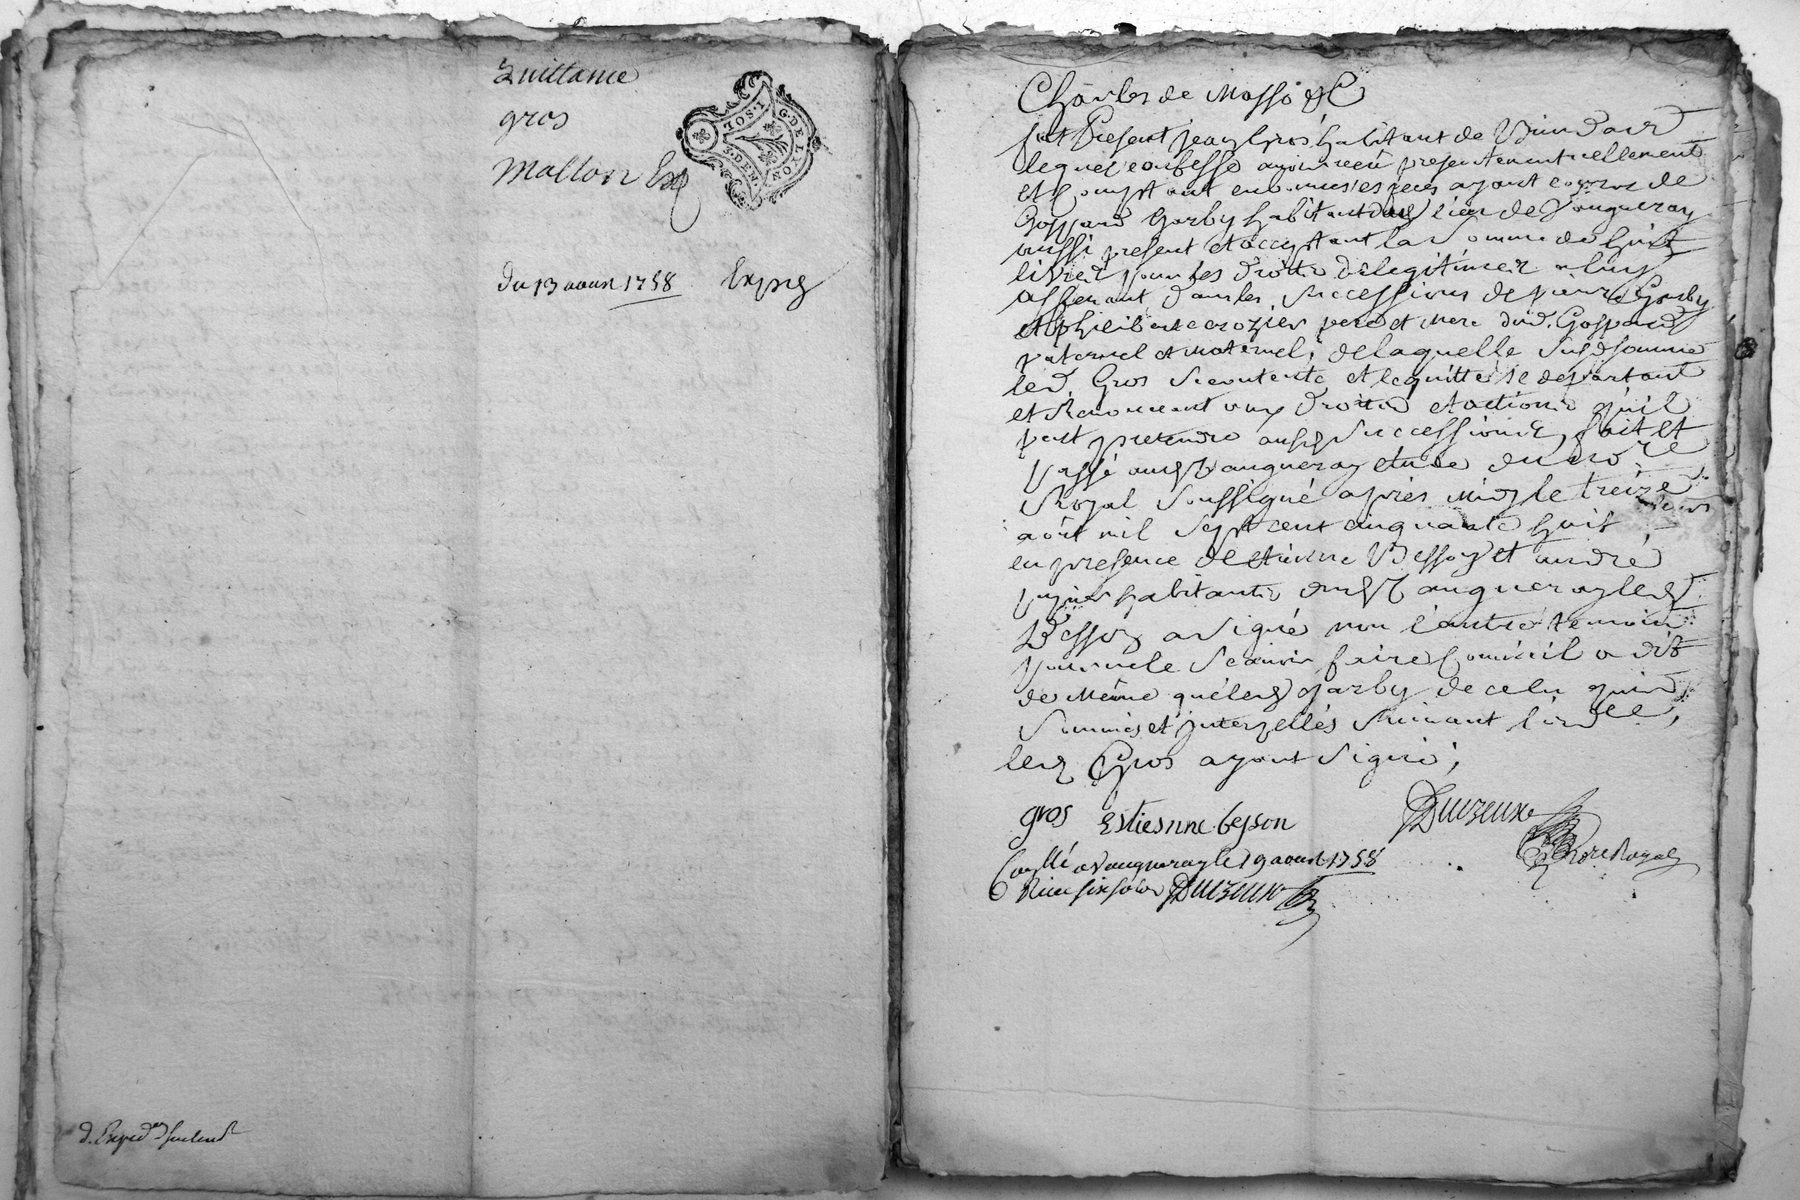 Quittance
gros
G. DE LYON
1. SOL. 3. DEN.
du 13 aoust 1758 Expié
Charles de Masso &c
fut Present jean gros habitant de
lequel confesse avoir reçu presentement reellement
et Comptant en bonnes especes ayant cours de
Gaspard Garby habitant du lieu de Vaugneray
aussi present et acceptant la somme de huit
livres pour les droits de legitimes a luy
afferant dans les successions de pierre Garby
et philiberte crozier pere et mere dud. Gaspard
paternel et maternel, de laquelle susd somme
led. Gros se contente et le quitte se departant
et Renoncant aux droits et actions qu'il
peut pretendre ausd successions, fait et
passé aud Vaugneray etude du no.re
Royal soussigné apres midy le treize
aout mil sept cent cinquante huit
en presence de etienne Besson et andré
habitants aud Vaugneray led
Besson a signé non l'autre temoin
pour ne le scavoir faire Comme il a dit
de même que led garby de ce
sommés et interpellés suivant l'ord.ce,
led Gros ayant signé;
gros Estiesnne besson
no.re Royal
Con.llé a Vaugneray le 19 aoust 1758
Receu six sols